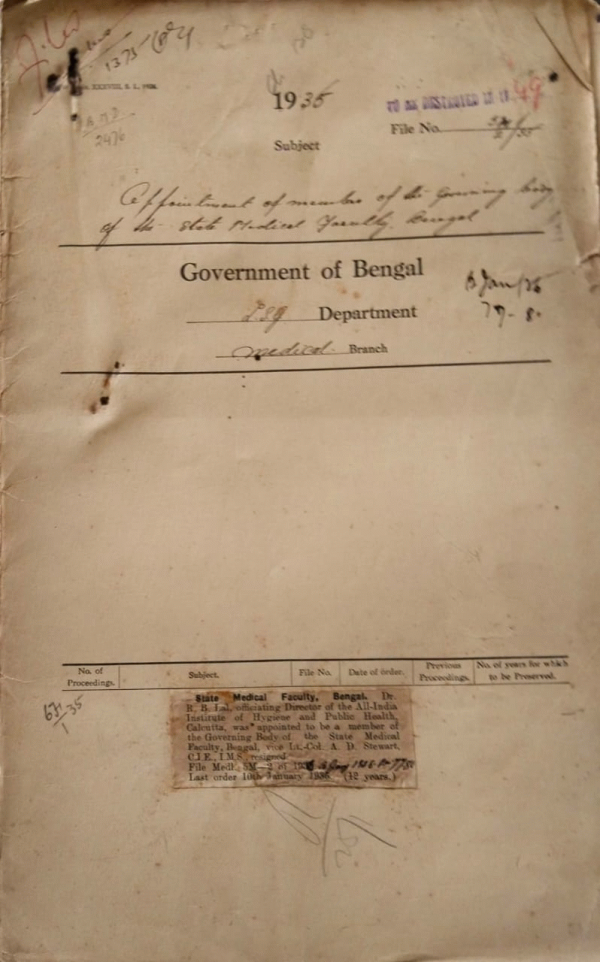 Files
1375
XXXVIII, S. L. 1926.
2476
1935
TO BE DESTROYED IN 19 49
File No.
Subject
Appointment of member of the Governing body
of the State Medical Faculty, Bengal
Government of Bengal
LSG Department
Medical Branch
No. of Proceedings.
Subject.
File No.
Date of order.
Previous Proceedings.
No. of years for which to be Preserved.
State Medical Faculty, Bengal. Dr.
R. B. Lal, officiating Director of the All-India
Institute of Hygiene and Public Health,
Calcutta, was appointed to be a member of
the Governing Body of the State Medical
Faculty, Bengal, vice Lt.-Col. A. D. Stewart,
C.I.E., I.M.S., resigned.
File Medl. 5M—2 of
Last order 10th January 1936. (12 years.)